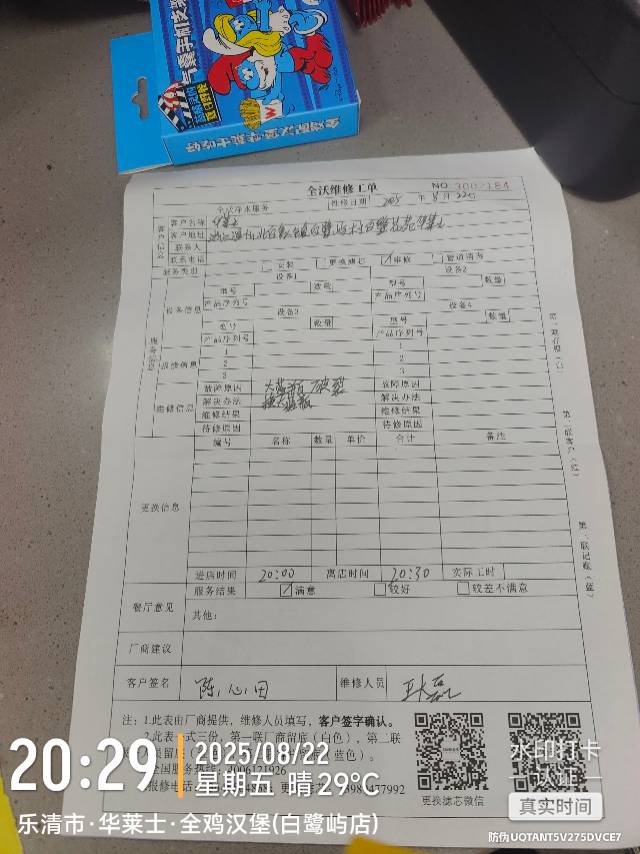 全沃维修工单
NO 3002184
全沃净水服务
维修日期 2025 年 8月22日
客户信息
客户名称 华莱士
客户地址
联系人
联系电话
服务类别 安装 更换滤芯 ✓维修 管道清洗
设备1 设备2
型号 数量 型号 数量
设备信息
产品序列号 产品序列号
设备3 设备4
型号 数量 型号 数量
产品序列号 产品序列号
1 1
2 2
3 3
维修信息
故障原因 大蓝瓶破裂 故障原因
解决办法 换大蓝瓶 解决办法
维修结果 维修结果
待修原因 待修原因
编号 名称 数量 单价 合计 备注
更换信息
进店时间 20:00 离店时间 20:30 实际工时
服务结果 ✓满意 较好 较差不满意
餐厅意见
其他:
厂商建议
客户签名 陈心田 维修人员
注:1.此表由厂商提供,维修人员填写,客户签字确认。
2.此表一式三份,第一联厂商留底(白色),第二联
蓝色)。
全国服务热线:4006121926
更换滤芯微信
20:29
2025/08/22
星期五 晴 29℃
乐清市·华莱士·全鸡汉堡(白鹭屿店)
水印打卡
认证
真实时间
防伪UQTANT5V275DVCE7